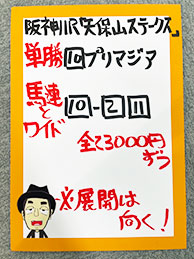 阪神11R「矢保山ステークス」
単勝⑩プリマジア
馬連とワイド ⑩-②⑪
全て3000円ずつ
※展開は向く!